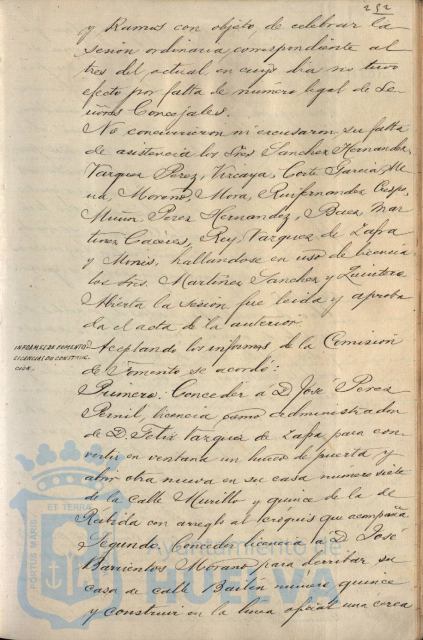 252
y Ramos con objeto de celebrar la
sesión ordinaria correspondiente al
tres del actual, en cuyo dia no tuvo
efecto por falta de numero legal de Se-
ñores Concejales.
No concurrieron ni excusaron su falta
de asistencia los Sres Sanchez Hernandez,
Vazquez Perez, Vizcaya, Corte Garcia,
Moreno, Mora, Ruifernandez Crespo,
Muñoz Perez Hernandez, Baez, Mar-
tinez Caceres, Rey, Vazquez de Zafra
y Monis, hallandose en uso de licencia
los Sres. Martinez Sanchez y Quintero
Abierta la sesión fue leida y aproba
da el acta de la anterior.
INFORMES DE FOMENTO
LICENCIAS DE CONSTRUC-
CIÓN.
Aceptando los informes de la Comisión
de Fomento se acordó:
Primero: Conceder á D. José Perez
Pernil, licencia como administrador
de D. Felix Vazquez de Zafra para con-
vertir en ventana un hueco de puerta y
abrir otra nueva en su casa número siete
de la calle Murillo y quince de la de
Rábida con arreglo al cróquis que acompaña
Segundo: Conceder licencia á D. José
Barrientos Morano para derribar su
casa de calle Bailén número quince
y construir en la linea oficial una cerca
ET TERRÆ
PORTUS MARIS
Ayuntamiento de
HUELVA